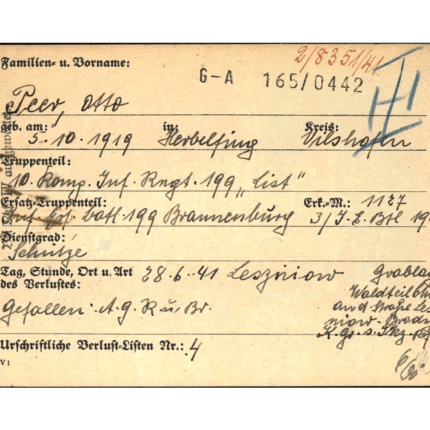 2/8351/41
Familien- u. Vorname:
G-A 165/0442
III
Peer, Otto
geb. am: 5.10.1919 in: Herbelfing Kreis: Vilshofen
Truppenteil:
10. Komp. Inf. Rngt. 199 „List"
Ersatz-Truppenteil: Erk.-M.: 1127
Inf. batl. 199 Brannenburg 3/I.E.Btl 19
Dienstgrad:
Schütze
Tag, Stunde, Ort u. Art 28.6.41 Lesziniow
des Verlustes:
Gefallen: A.G.K u. Br.
Grablag
Waldteil
an d. Straße Les
niow - Brod
Urschriftliche Verlust-Listen Nr.: 4
V1